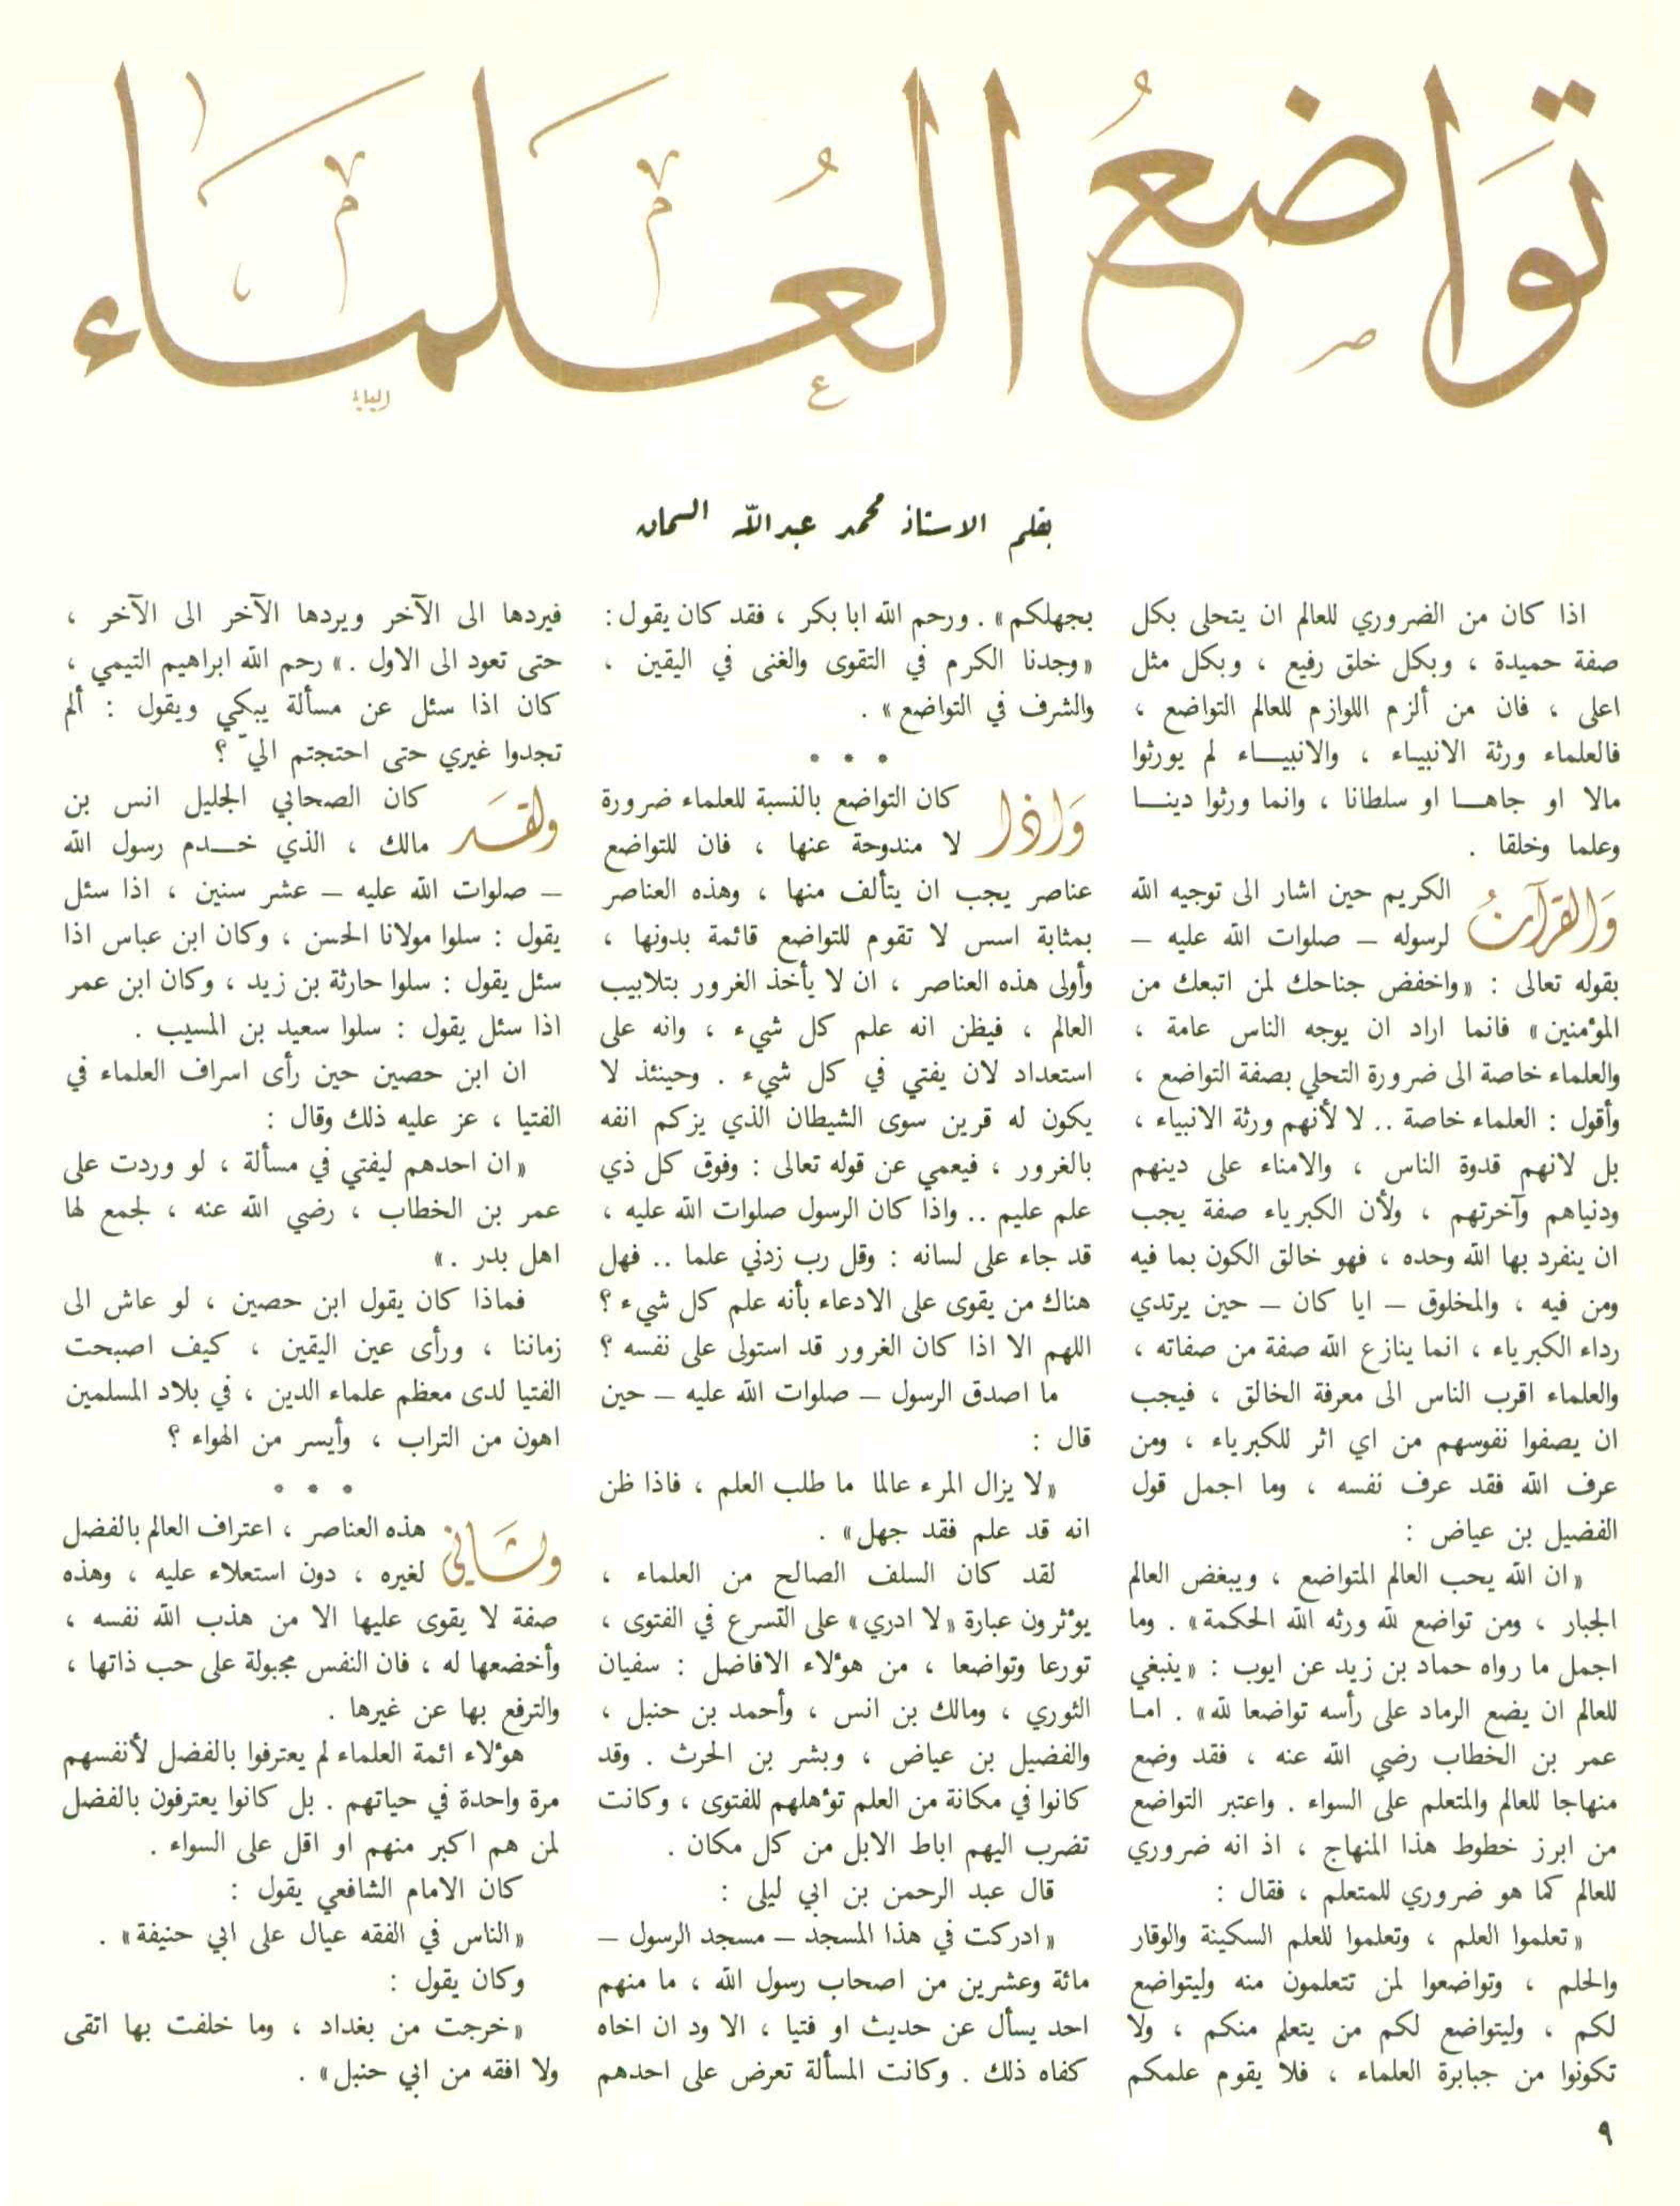 تَوَاضعُ العُلمَاء
بقلم الاستاذ محمد عبدالله السمان
اذا كان من الضروري للعالم ان يتحلى بكل
صفة حميدة ، وبكل خلق رفيع ، وبكل مثل
اعلى ، فان من ألزم اللوازم للعالم التواضع ،
فالعلماء ورثة الانبياء ، والانبيـــاء لم يورثوا
مالا او جاهـــا او سلطانا ، وانما ورثوا دينـــا
وعلما وخلقا .
وَالقرآنُ الكريم حين اشار الى توجيه الله
لرسوله – صلوات الله عليه –
بقوله تعالى : «واخفض جناحك لمن اتبعك من
المؤمنين» فانما اراد ان يوجه الناس عامة ،
والعلماء خاصة الى ضرورة التحلي بصفة التواضع ،
وأقول : العلماء خاصة .. لا لأنهم ورثة الانبياء ،
بل لانهم قدوة الناس ، والامناء على دينهم
ودنياهم وآخرتهم ، ولأن الكبرياء صفة يجب
ان ينفرد بها الله وحده ، فهو خالق الكون بما فيه
ومن فيه ، والمخلوق – ايا كان – حين يرتدي
رداء الكبرياء ، انما ينازع الله صفة من صفاته ،
والعلماء اقرب الناس الى معرفة الخالق ، فيجب
ان يصفوا نفوسهم من اي اثر للكبرياء ، ومن
عرف الله فقد عرف نفسه ، وما اجمل قول
الفضيل بن عياض :
«ان الله يحب العالم المتواضع ، ويبغض العالم
الجبار ، ومن تواضع لله ورثه الله الحكمة» . وما
اجمل ما رواه حماد بن زيد عن ايوب : «ينبغي
للعالم ان يضع الرماد على رأسه تواضعا لله» . امـا
عمر بن الخطاب رضي الله عنه ، فقد وضع
منهاجا للعالم والمتعلم على السواء . واعتبر التواضع
من ابرز خطوط هذا المنهاج ، اذ انه ضروري
للعالم كما هو ضروري للمتعلم ، فقال :
«تعلموا العلم ، وتعلموا للعلم السكينة والوقار
والحلم ، وتواضعوا لمن تتعلمون منه وليتواضع
لكم ، وليتواضع لكم من يتعلم منكم ، ولا
تكونوا من جبابرة العلماء ، فلا يقوم علمكم
بجهلكم» . ورحم الله ابا بكر ، فقد كان يقول :
«وجدنا الكرم في التقوى والغنى في اليقين ،
والشرف في التواضع» .
• • •
وَاذا كان التواضع بالنسبة للعلماء ضرورة
لا مندوحة عنها ، فان للتواضع
عناصر يجب ان يتألف منها ، وهذه العناصر
بمثابة اسس لا تقوم للتواضع قائمة بدونها ،
وأولى هذه العناصر ، ان لا يأخذ الغرور بتلابيب
العالم ، فيظن انه علم كل شيء ، وانه على
استعداد لان يفتي في كل شيء . وحينئذ لا
يكون له قرين سوى الشيطان الذي يزكم انفه
بالغرور ، فيعمي عن قوله تعالى : وفوق كل ذي
علم عليم .. واذا كان الرسول صلوات الله عليه ،
قد جاء على لسانه : وقل رب زدني علما .. فهل
هناك من يقوى على الادعاء بأنه علم كل شيء ؟
اللهم الا اذا كان الغرور قد استولى على نفسه ؟
ما اصدق الرسول – صلوات الله عليه – حين
قال :
«لا يزال المرء عالما ما طلب العلم ، فاذا ظن
انه قد علم فقد جهل» .
لقد كان السلف الصالح من العلماء ،
يؤثرون عبارة «لا ادري» على التسرع في الفتوى ،
تورعا وتواضعا ، من هؤلاء الافاضل : سفيان
الثوري ، ومالك بن انس ، وأحمد بن حنبل ،
والفضيل بن عياض ، وبشر بن الحرث . وقد
كانوا في مكانة من العلم تؤهلهم للفتوى ، وكانت
تضرب اليهم اباط الابل من كل مكان .
قال عبد الرحمن بن ابي ليلى :
«ادركت في هذا المسجد – مسجد الرسول –
مائة وعشرين من اصحاب رسول الله ، ما منهم
احد يسأل عن حديث او فتيا ، الا ود ان اخاه
كفاه ذلك . وكانت المسألة تعرض على احدهم
فيردها الى الآخر ويردها الآخر الى الآخر ،
حتى تعود الى الاول .» رحم الله ابراهيم التيمي ،
كان اذا سئل عن مسألة يبكي ويقول : ألم
تجدوا غيري حتى احتجتم اليّ ؟
ولقَد كان الصحابي الجليل انس بن
مالك ، الذي خـــدم رسول الله
– صلوات الله عليه – عشر سنين ، اذا سئل
يقول : سلوا مولانا الحسن ، وكان ابن عباس اذا
سئل يقول : سلوا حارثة بن زيد ، وكان ابن عمر
اذا سئل يقول : سلوا سعيد بن المسيب .
ان ابن حصين حين رأى اسراف العلماء في
الفتيا ، عز عليه ذلك وقال :
«ان احدهم ليفتي في مسألة ، لو وردت على
عمر بن الخطاب ، رضي الله عنه ، لجمع لها
اهل بدر .»
فماذا كان يقول ابن حصين ، لو عاش الى
زماننا ، ورأى عين اليقين ، كيف اصبحت
الفتيا لدى معظم علماء الدين ، في بلاد المسلمين
اهون من التراب ، وأيسر من الهواء ؟
• • •
وثَاني هذه العناصر ، اعتراف العالم بالفضل
لغيره ، دون استعلاء عليه ، وهذه
صفة لا يقوى عليها الا من هذب الله نفسه ،
وأخضعها له ، فان النفس مجبولة على حب ذاتها ،
والترفع بها عن غيرها .
هؤلاء ائمة العلماء لم يعترفوا بالفضل لأنفسهم
مرة واحدة في حياتهم . بل كانوا يعترفون بالفضل
لمن هم اكبر منهم او اقل على السواء .
كان الامام الشافعي يقول :
«الناس في الفقه عيال على ابي حنيفة» .
وكان يقول :
«خرجت من بغداد ، وما خلفت بها اتقى
ولا افقه من ابي حنبل» .
٩